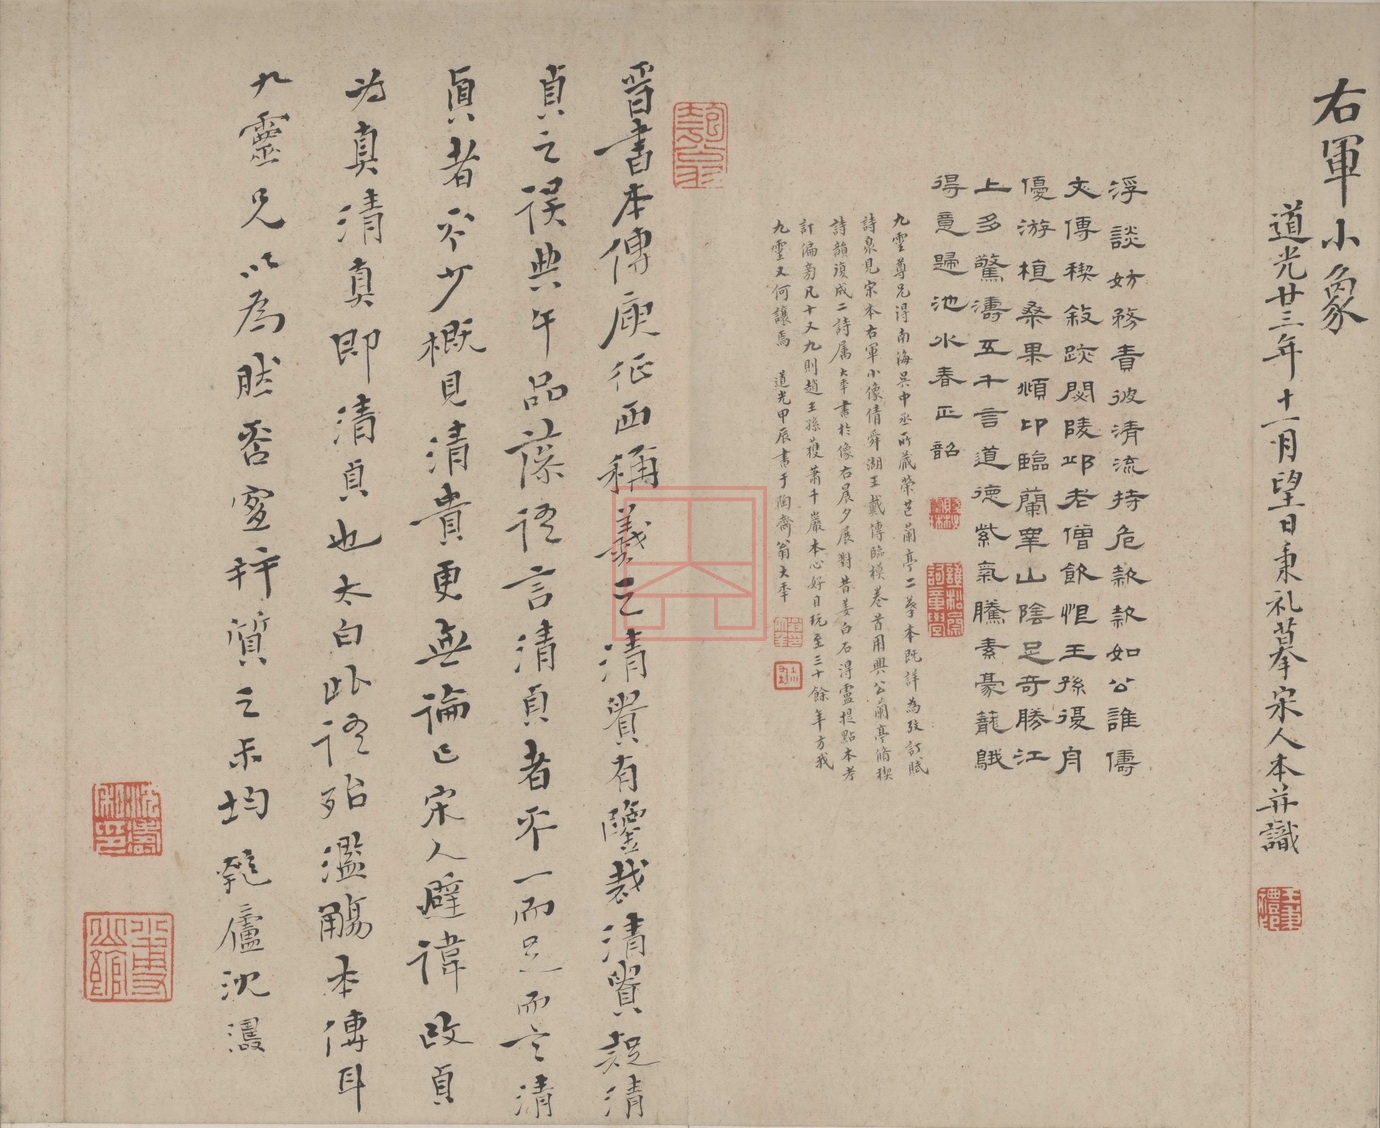 右軍小象
道光廿三年十一月望日秉礼摹宋人本并識
浮談妨務責彼清流持危款款如公誰儔
文傳稧敘跋閟陵邱老僧飲恨王孫復舟
優游植桑果頒印臨蘭罩山陰足奇勝江
上多驚濤五千言道德紫氣騰素豪籠鵝
得意歸池水春正韶
九霊尊兄得南海吳中丞所藏榮芑蘭亭二摹本既詳為攷訂賦
詩裒見宋本右軍小像倩舜湖王戴傳臨模卷首用興公蘭亭脩稧
詩韻復成二詩属大年書於像右晨夕展對昔姜白石得盧提點本考
訂偏旁凡十又九則趙王孫获蕭千巖本心好目玩至三十餘年方我
九霊又何讓焉 道光甲辰書于陶齋翁大年
晉書本傳庾征西稱羲之清貴有鑒裁清貴疑清
貞之誤典午品藻語言清貞者不一而足而言清
貞者不少概見清貴更無論已宋人避諱改貞
為真清真即清貞也太白此語殆濫觴本傳耳
九靈兄以為然否寔辥質之未均匏廬沈濤